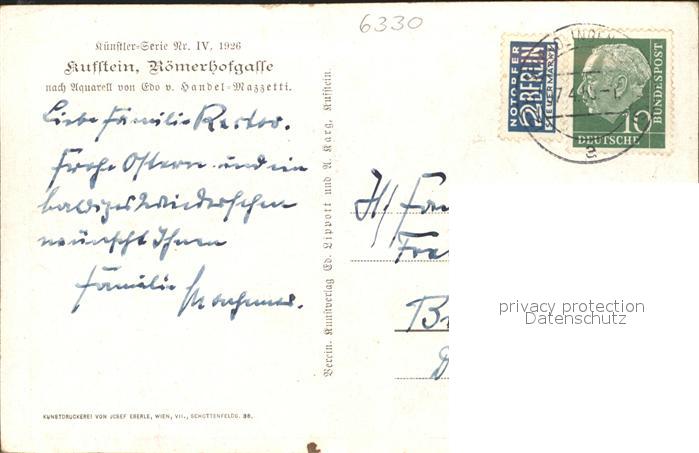 6330
Künstler-Serie Nr. IV, 1926
Kufstein, Römerhofgasse
nach Aquarell von Edo v. Handel-Mazzetti.
Liebe Familie
Frohe Ostern und ein
baldiges Wiedersehen
wünscht Ihnen
Familie
Verein. Kunstverlag Ed. Lippott und A. Karg, Kufstein.
KUNSTDRUCKEREI VON JOSEF EBERLE, WIEN, VII., SCHOTTENFELDG. 38.
NOTOPFER
2 BERLIN
STEUERMARKE
10
DEUTSCHE
BUNDESPOST
a
privacy protection
Datenschutz